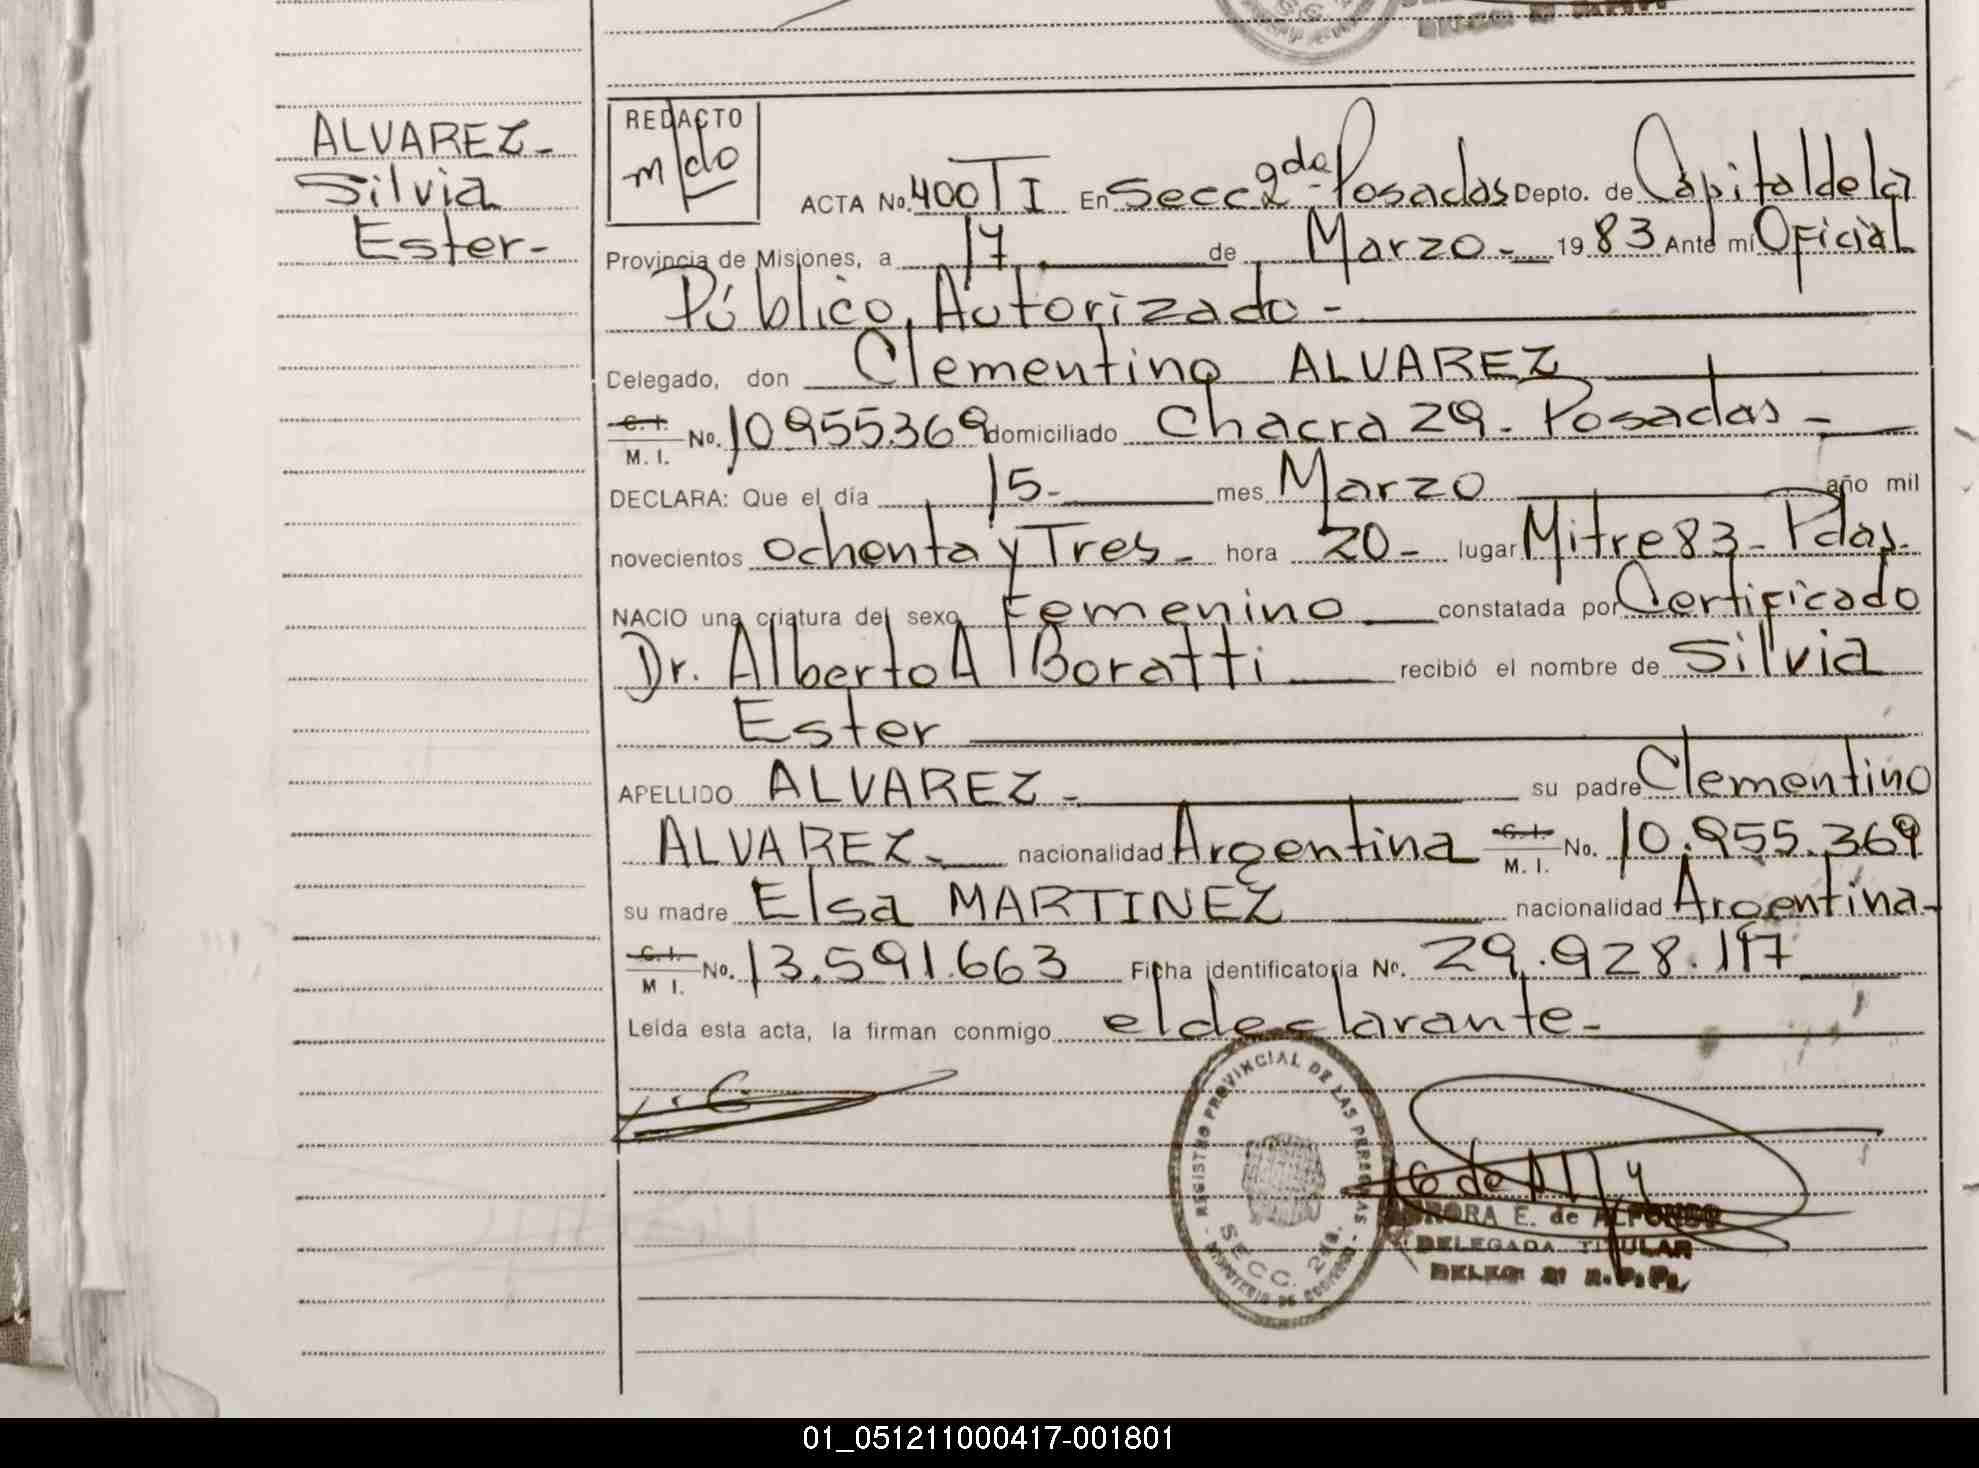 ALVAREZ-
Silvia
Ester-
REDACTO
mdo
ACTA No. 400 T I En Secc 2da- Posadas Depto. de Capital de la
Provincia de Misiones, a 17 de Marzo- 1983 Ante mi Oficial
Público, Autorizado-
Delegado, don Clementino ALVAREZ
C. I. M. I. No. 10955369 domiciliado Chacra 29- Posadas-
DECLARA: Que el día 15- mes Marzo año mil
novecientos ochenta y Tres- hora 20- lugar Mitre 83- Pdas.
NACIO una criatura del sexo Femenino constatada por Certificado
Dr. Alberto A Boratti recibió el nombre de Silvia
Ester
APELLIDO ALVAREZ- su padre Clementino
ALVAREZ- nacionalidad Argentina C. I. M. I. No. 10.955.369
su madre Elsa MARTINEZ nacionalidad Argentina-
C. I. M I. No. 13.591.663 Ficha identificatoria No. 29.928.117
Leída esta acta, la firman conmigo el declarante-
REGISTRO PROVINCIAL DE LAS PERSONAS
SECC. 2da.
AURORA E. de ALFONSO
DELEGADA TITULAR
DELEG. 2ª R.P.P.
01_051211000417-001801